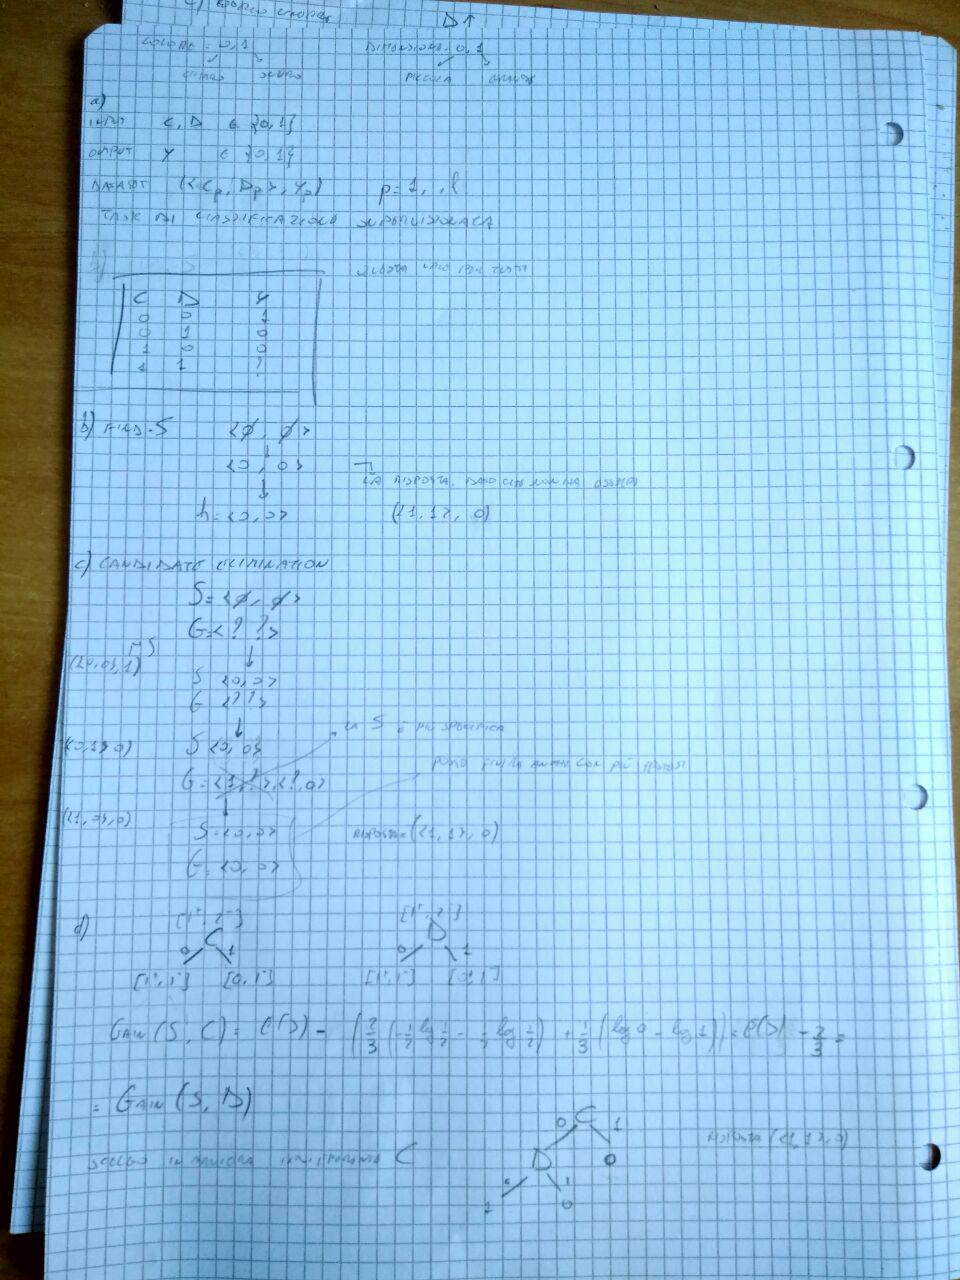 D↑
COLORE = 0, 1
DIMENSIONE = 0, 1
CHIARO SCURO
PICCOLA GRANDE
a)
INPUT C, D ∈ {0, 1}
OUTPUT Y ∈ {0, 1}
DATASET (<Cp, Dp>, Yp) p = 1, , l
TASK DI CLASSIFICAZIONE SUPERVISIONATA
C D Y
0 0 1
0 1 0
1 0 0
1 1 ?
b) FIND-S <ø, ø>
<0, 0>
LA RISPOSTA, DATO CHE NON HA
h = <0, 0> (<1, 1>, 0)
c) CANDIDATE ELIMINATION
S = <ø, ø>
G = <? ?>
(<0, 0>, 1)
S <0, 0>
G <? ?>
LA S È PIÙ SPECIFICA
(<0, 1> 0) S <0, 0>
G = <1, ?>, <?, 0>
(<1, 0>, 0)
S = <0, 0> RISPOSTA = (<1, 1>, 0)
G = <0, 0>
d)
[1+, 2-] [1+, 2-]
C D
0 1 0 1
[1+, 1-] [0, 1-] [1+, 1-] [0, 1-]
GAIN (S, C) = E(S) - (2/3 (-1/2 log 1/2 - 1/2 log 1/2) + 1/3 (log 0 - log 1)) = E(S) - 2/3 =
= GAIN (S, D)
0 C 1
SCELGO IN MANIERA INDIFFERENTE C
D 0
RISPOSTA (<1, 1>, 0)
1 0